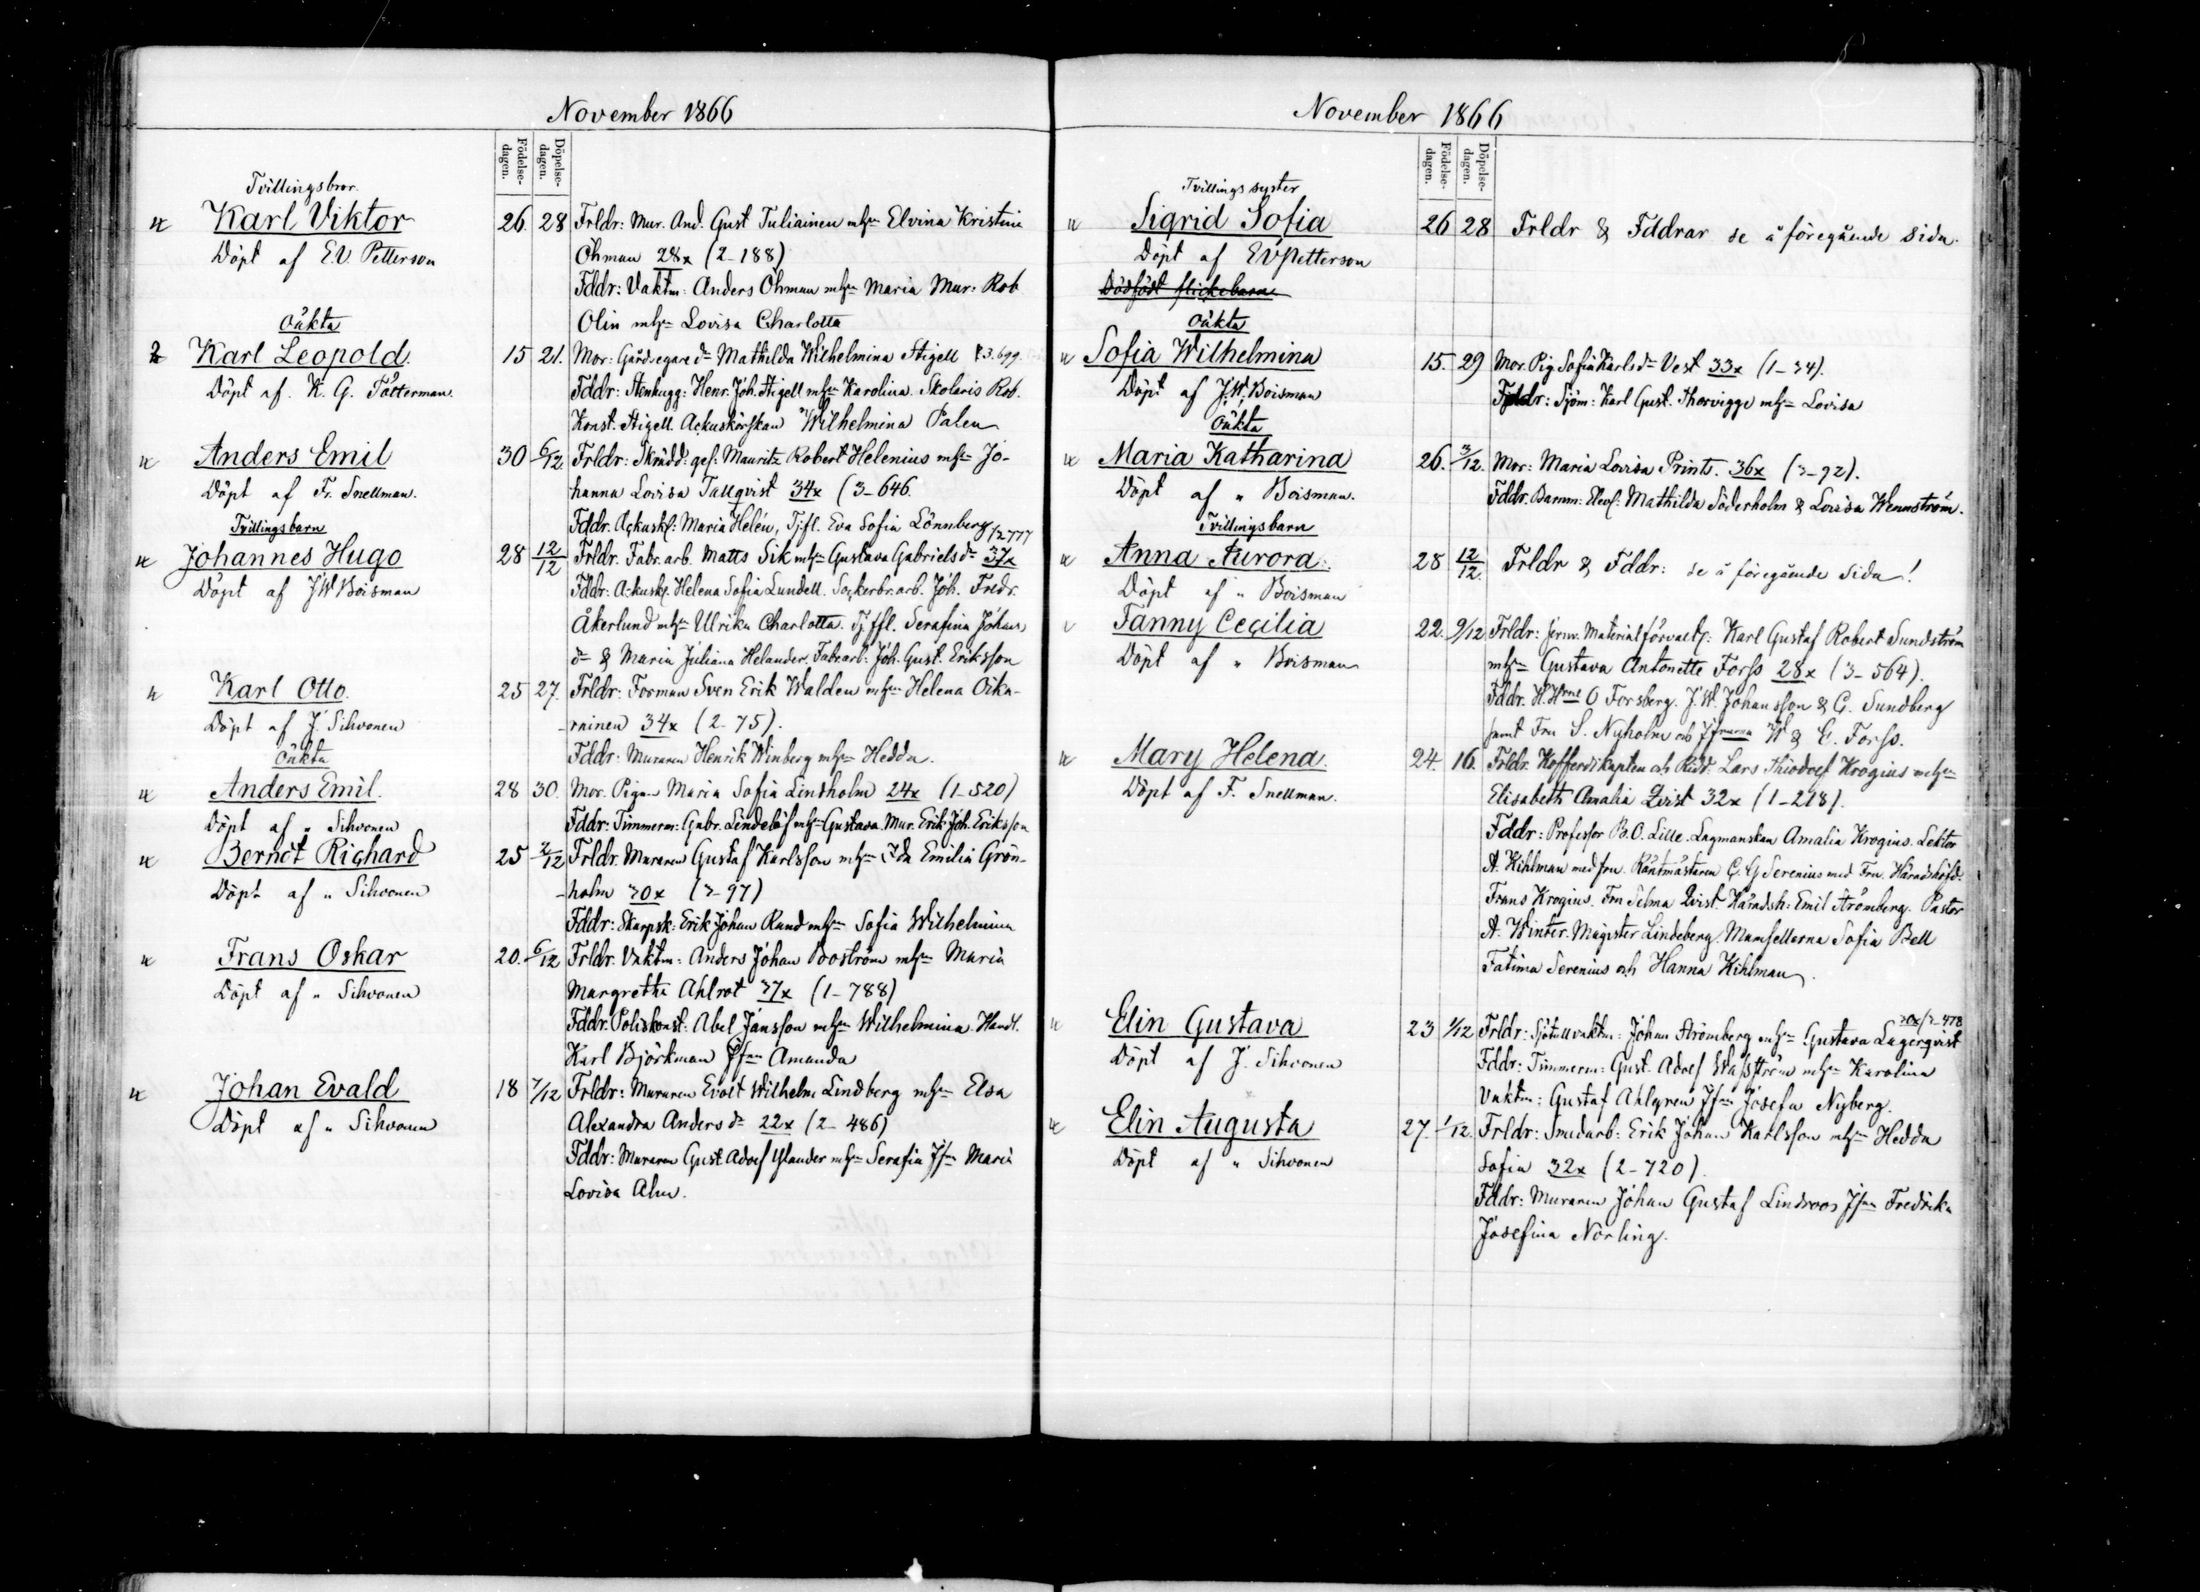 November 1866
Födelse-dagen.
Döpelse-dagen.
Tvillingsbror.
Karl Viktor 26. 28 Frldr: Mur. And. Gust Tuliainen mhn Elvina Kristina
Döpt af EV Petterson Öhman 28x (2-188)
Fddr: Vaktm: Anders Öhman mhn Maria Mur: Rob
Olin mhn Lovisa Charlotta
Oäkta
Karl Leopold. 15 21. Mor: Gårdsegare dr Mathilda Wilhelmina Stigell 3.699.
Döpt af. K. G. Tötterman. Fddr: Stenhugg: Henr. Joh. Stigell mhn Karolina. Skolaris Rob.
Konst. Stigell. Ackuskörskan Wilhelmina Palen
Anders Emil 30 6/12 Frldr: Skrädd: ges: Mauritz Robert Helenius mhn Jo-
Döpt af Fr. Snellman. hanna Lovisa Tallqvist 34x (3-646.
Fddr. Ackusk: Maria Helén, Tjfl. Eva Sofia Lönnberg
Tvillingsbarn
Johannes Hugo 28 12/12 Frldr. Fabr. arb. Matts Sik mhn Gustava Gabrielsdr 37x /2777
Döpt af JW Boisman Fddr: Ackusk. Helena Sofia Lundell. Sockerbr. arb. Joh. Fredr.
Åkerlund mhn Ulrika Charlotta. Tjffl. Serafina Johans
dr & Maria Juliana Helander. Fabr arb: Joh. Gust. Eriksson
Karl Otto. 25 27. Frldr: Forman Sven Erik Walden mhn Helena Oika-
Döpt af J. Sihvonen -rainen 34x (2-75).
Fddr: Muraren Henrik Winberg mhn Hedda.
Oäkta
Anders Emil. 28 30. Mor. Pigan Maria Sofia Lindholm 24x (1-520)
Döpt af " Sihvonen Fddr: Timmerm: Gabr. Lindelöf mhn Gustava. Mur. Erik Joh. Eriksson
Berndt Richard 25 2/12 Frldr. Muraren Gustaf Karlsson mhn Ida Emilia Grön-
Döpt af " Sihvonen -holm 30x (3-97)
Fddr: Skarpsk: Erik Johan Rund mhn Sofia Wilhelmina
Frans Oskar 20. 6/12 Frldr. Vaktm: Anders Johan Boström mhn Maria
Döpt af " Sihvonen Margretha Ahlrot 37x (1-788)
Fddr: Poliskonst: Abel Jansson mhn Wilhelmina. Handl.
Karl Björkman Jfrun Amanda
Johan Evald 18 7/12 Frldr: Muraren Evalt Wilhelm Lindberg mhn Elsa
Döpt af " Sihvonen Alexandra Andersdr 22x (2-486)
Fddr: Muraren Gust. Adolf Ylander mhn Serafia Jfrn Maria
Lovisa Alm.
November 1866
Födelse-dagen.
Döpelse-dagen.
Tvillings syster
Sigrid Sofia 26 28 Frldr & Fddrar se å föregående sida.
Döpt af EV Petterson
Dödfödt flickebarn
Oäkta
Sofia Wilhelmina 15. 29 Mor. Pig Sofia Karlsdr Vest 33x (1-34).
Döpt af J.W. Boisman Fddr: Sjöm: Karl Gust. Thorvigge mhn Lovisa
Oäkta
Maria Katharina 26. 3/12. Mor: Maria Lovisa Printz. 36x (3-92).
Döpt af " Boisman. Fddr. Barnm: Elev: Mathilda Söderholm & Lovisa Wennström.
Tvillingsbarn
Anna Aurora. 28 12/12. Frldr & Fddr: se å föregående sida!
Döpt af " Boisman
Fanny Cecilia 22. 9/12 Frldr: Jernv. Materialförvalt: Karl Gustaf Robert Sundström
Döpt af " Boisman mhn Gustava Antonette Forss 28x (3-564).
Fddr. H. Hrne O Forsberg. J.W. Johansson & G. Sundberg
samt Fru S. Nyholm och Jfrurna W & E. Forss.
Mary Helena. 24. 16. Frldr. Kofferdikapten och Ridd. Lars Thiodolf Krogius mhn
Döpt af F. Snellman. Elisabeth Amalia Qvist 32x (1-218).
Fddr: Professor B.O. Lille. Lagmanskan Amalia Krogius. Lektor
A. Kihlman med fru. Räntmästaren C. G Serenius med Fru. Häradshöfd.
Frans Krogius. Fru Selma Qvist. Häradsh: Emil Strömberg. Pastor
A. Winter. Magister Lindeberg. Mamsellerna Sofia Bell
Fatima Serenius och Hanna Kihlman.
30x/3-478
Elin Gustava 23 1/12 Frldr: Sjötullvaktm: Johan Strömberg mhn Gustava Lagerqvist
Döpt af J. Sihvonen Fddr: Timmerm: Gust. Adolf Wasström mhn Karolina
Vaktm: Gustaf Ahlgren Jfrn Josefa Nyberg.
Elin Augusta 27. 1/12. Frldr: Smedarb: Erik Johan Karlsson mhn Hedda
Döpt af " Sihvonen Sofia 32x (2-720).
Fddr: Muraren Johan Gustaf Lindroos Jfrn Fredrika
Josefina Norling.